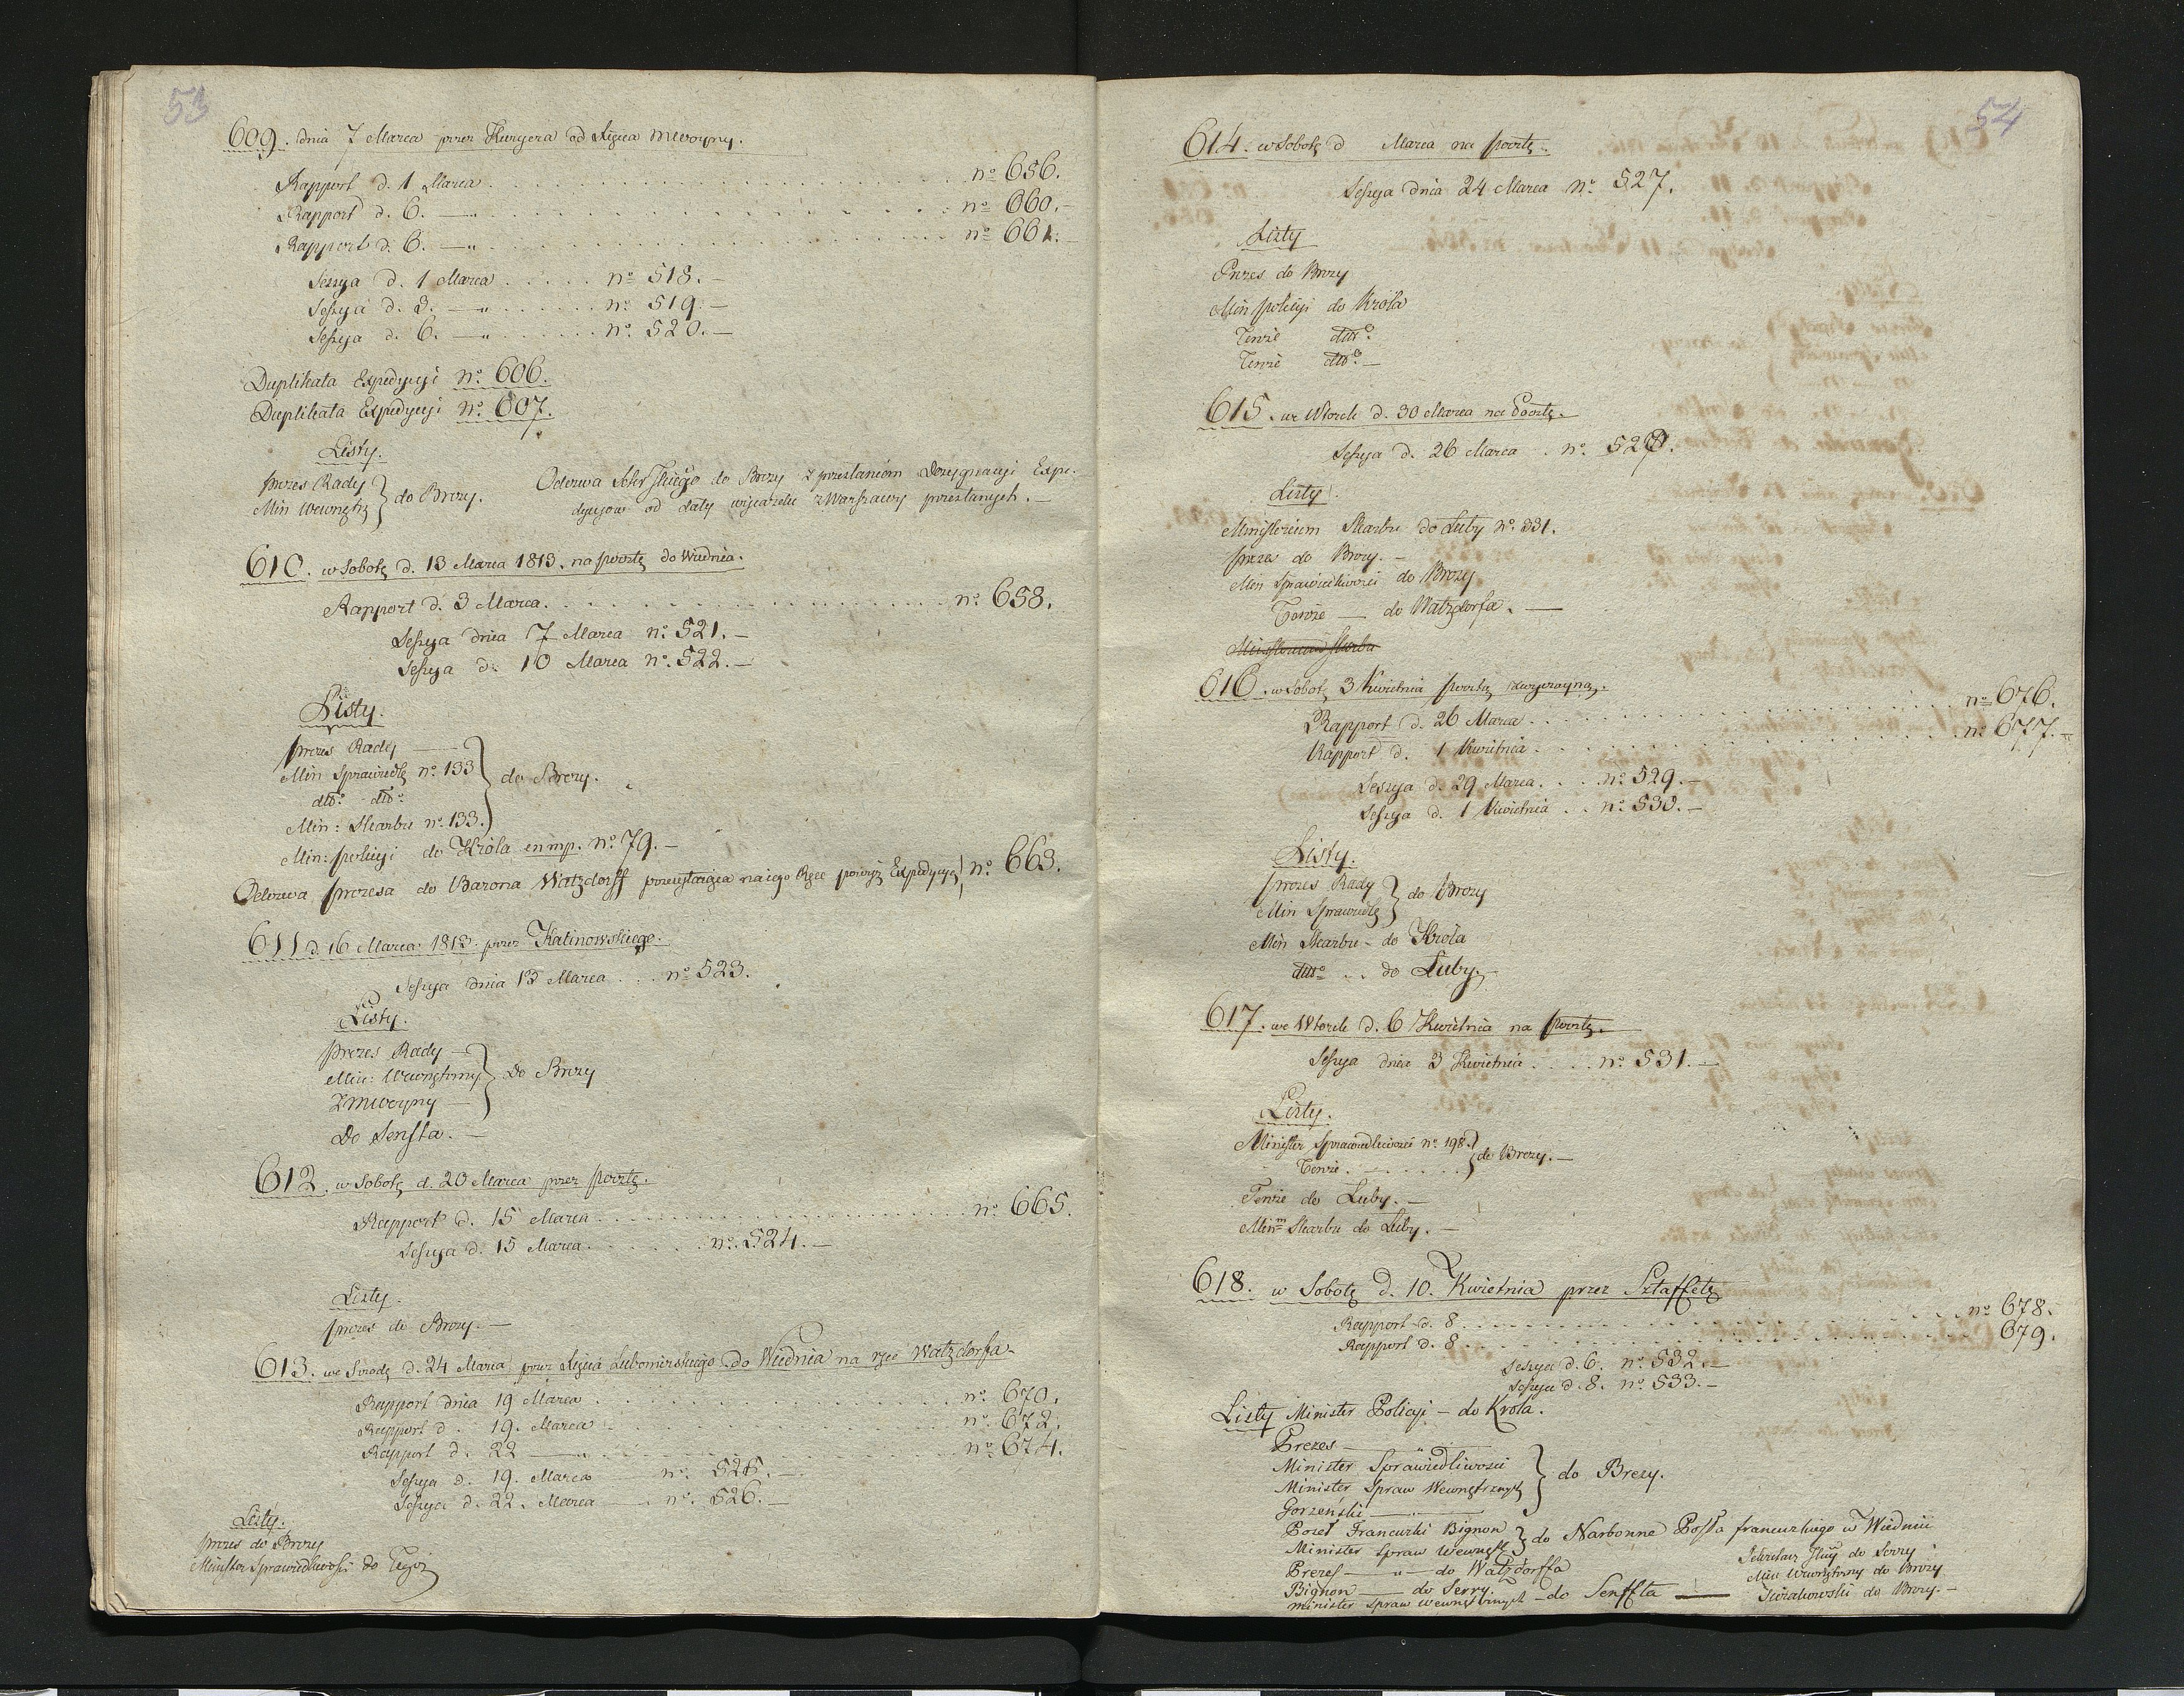 53
609. dnia 7 Marca przez Kuryera od Xięcia
Rapport d. 1 Marca . . . . . no 656.
Rapport d. 6. — „ . . . . . no 660.
Rapport d. 6. — „ . . . . . no 661.
Sessya d. 1 Marca . . . . . no 518. —
Sessya d. 3. — „ . . . . . no 519. —
Sessya d. 6. — „ . . . . . no 520. —
Duplikata Expedycyi No. 606.
Duplikata Expedycyi No. 607.
Listy.
Prezes Rady
Min Wewnętrz } do Brezy.
Odezwa do Brezy z przesłaniem Expe-
dycyow od daty wyiazdu z Warszawy przesłanych. —
610. w Sobotę d. 13 Marca 1813. na pocztę do Wiednia.
Rapport d. 3 Marca . . . . . no 658.
Sessya dnia 7 Marca no. 521. —
Sessya d. 10 Marca no. 522. —
Listy.
Prezes Rady —
Min Sprawiedlę no. 133
dtto. dtto.
Min: Skarbu no. 133. } do Brezy.
Min: policyi do Króla en mp. no. 79. —
Odezwa prezesa do Barona Watzdorff na iego Ręce powyż Expedycyę no. 663.
611 d. 16 Marca. 1813. przez Kalinowskiego.
Sessya dnia 13 Marca . . . no. 523.
Listy.
Prezes Rady —
Min: Wewnętrzny
Do Brezy
Do Senfta. —
612. w Sobotę d. 20 Marca przez pocztę.
Rapport d. 15 Marca . . . . . no. 665.
Sessya d. 15 Marca . . . . . no. 524. —
Listy.
Prezes do Brezy. —
613. we Srodę d. 24 Marca przez Xięcia Lubomirskiego do Wiednia na ręce Watzdorfa.
Rapport dnia 19 Marca . . . . . no. 670.
Rapport d. 19. Marca . . . . . no. 672.
Rapport d. 22 — „ . . . . . no. 674.
Sessya d. 19. Marca no. 525. —
Sessya d. 22. Marca — no. 526. —
Listy.
Prezes do Brezy
Minister Sprawiedliwości do Tegoż
54
614. w Sobotę d Marca na pocztę.
Sessya dnia 24 Marca No. 527.
Listy
Prezes do Brezy
Min policyi do Króla
Tenże dtto.
Tenże dtto. —
615. we Wtorek d. 30 Marca na Pocztę.
Sessya d. 26 Marca . no.
Listy.
Ministerium Skarbu do Luby No. 331.
Prezes do Brezy. —
Min Sprawiedliwości do Brezy
Tenże — do Watzdorfa. —
Ministerium Skarbu
616. w Sobotę 3 Kwietnia pocztą zwyczayną.
Rapport d. 26 Marca . . . . . no 676.
Rapport d. 1 Kwietnia . . . . . no. 677. —
Sessya d. 29 Marca . . . no. 529. —
Sessya d. 1 Kwietnia . . no. 530. —
Listy.
Prezes Rady
Min Sprawiedlę } do Brezy
Min Skarbu - do Króla
dtto. . . do Luby. —
617. we Wtorek d. 6 Kwietnia na pocztę.
Sessya dnia 3 Kwietnia . . . . no. 531. —
Listy.
Minister Sprawiedliwości no. 198.
Tenże . — . . . . } do Brezy. —
Tenże do Luby. —
Minm Skarbu do Luby. —
618. w Sobotę d. 10. Kwietnia przez Sztaffetę
Rapport d. 8 . . . . . no. 678.
Rapport d. 8 . . . . . 679.
Sessya d. 6. no. 532. —
Sessya d. 8. no. 533. —
Listy Minister Policyi — do Króla.
Prezes —
Minister Sprawiedliwości
Minister Spraw Wewnętrznych
Gorzeński — } do Brezy.
Poseł Francuzki Bignon
Minister Spraw Wewnęt } do Narbonne Posła francuzkiego w Wiedniu
Prezes — „ — do Watzdorffa
Bignon — do Serry.
Minister Spraw Wewnętrznych — do Senffta —
Sekretarz do Serry
Min Wewnętrzny do Brezy
do Brezy. —